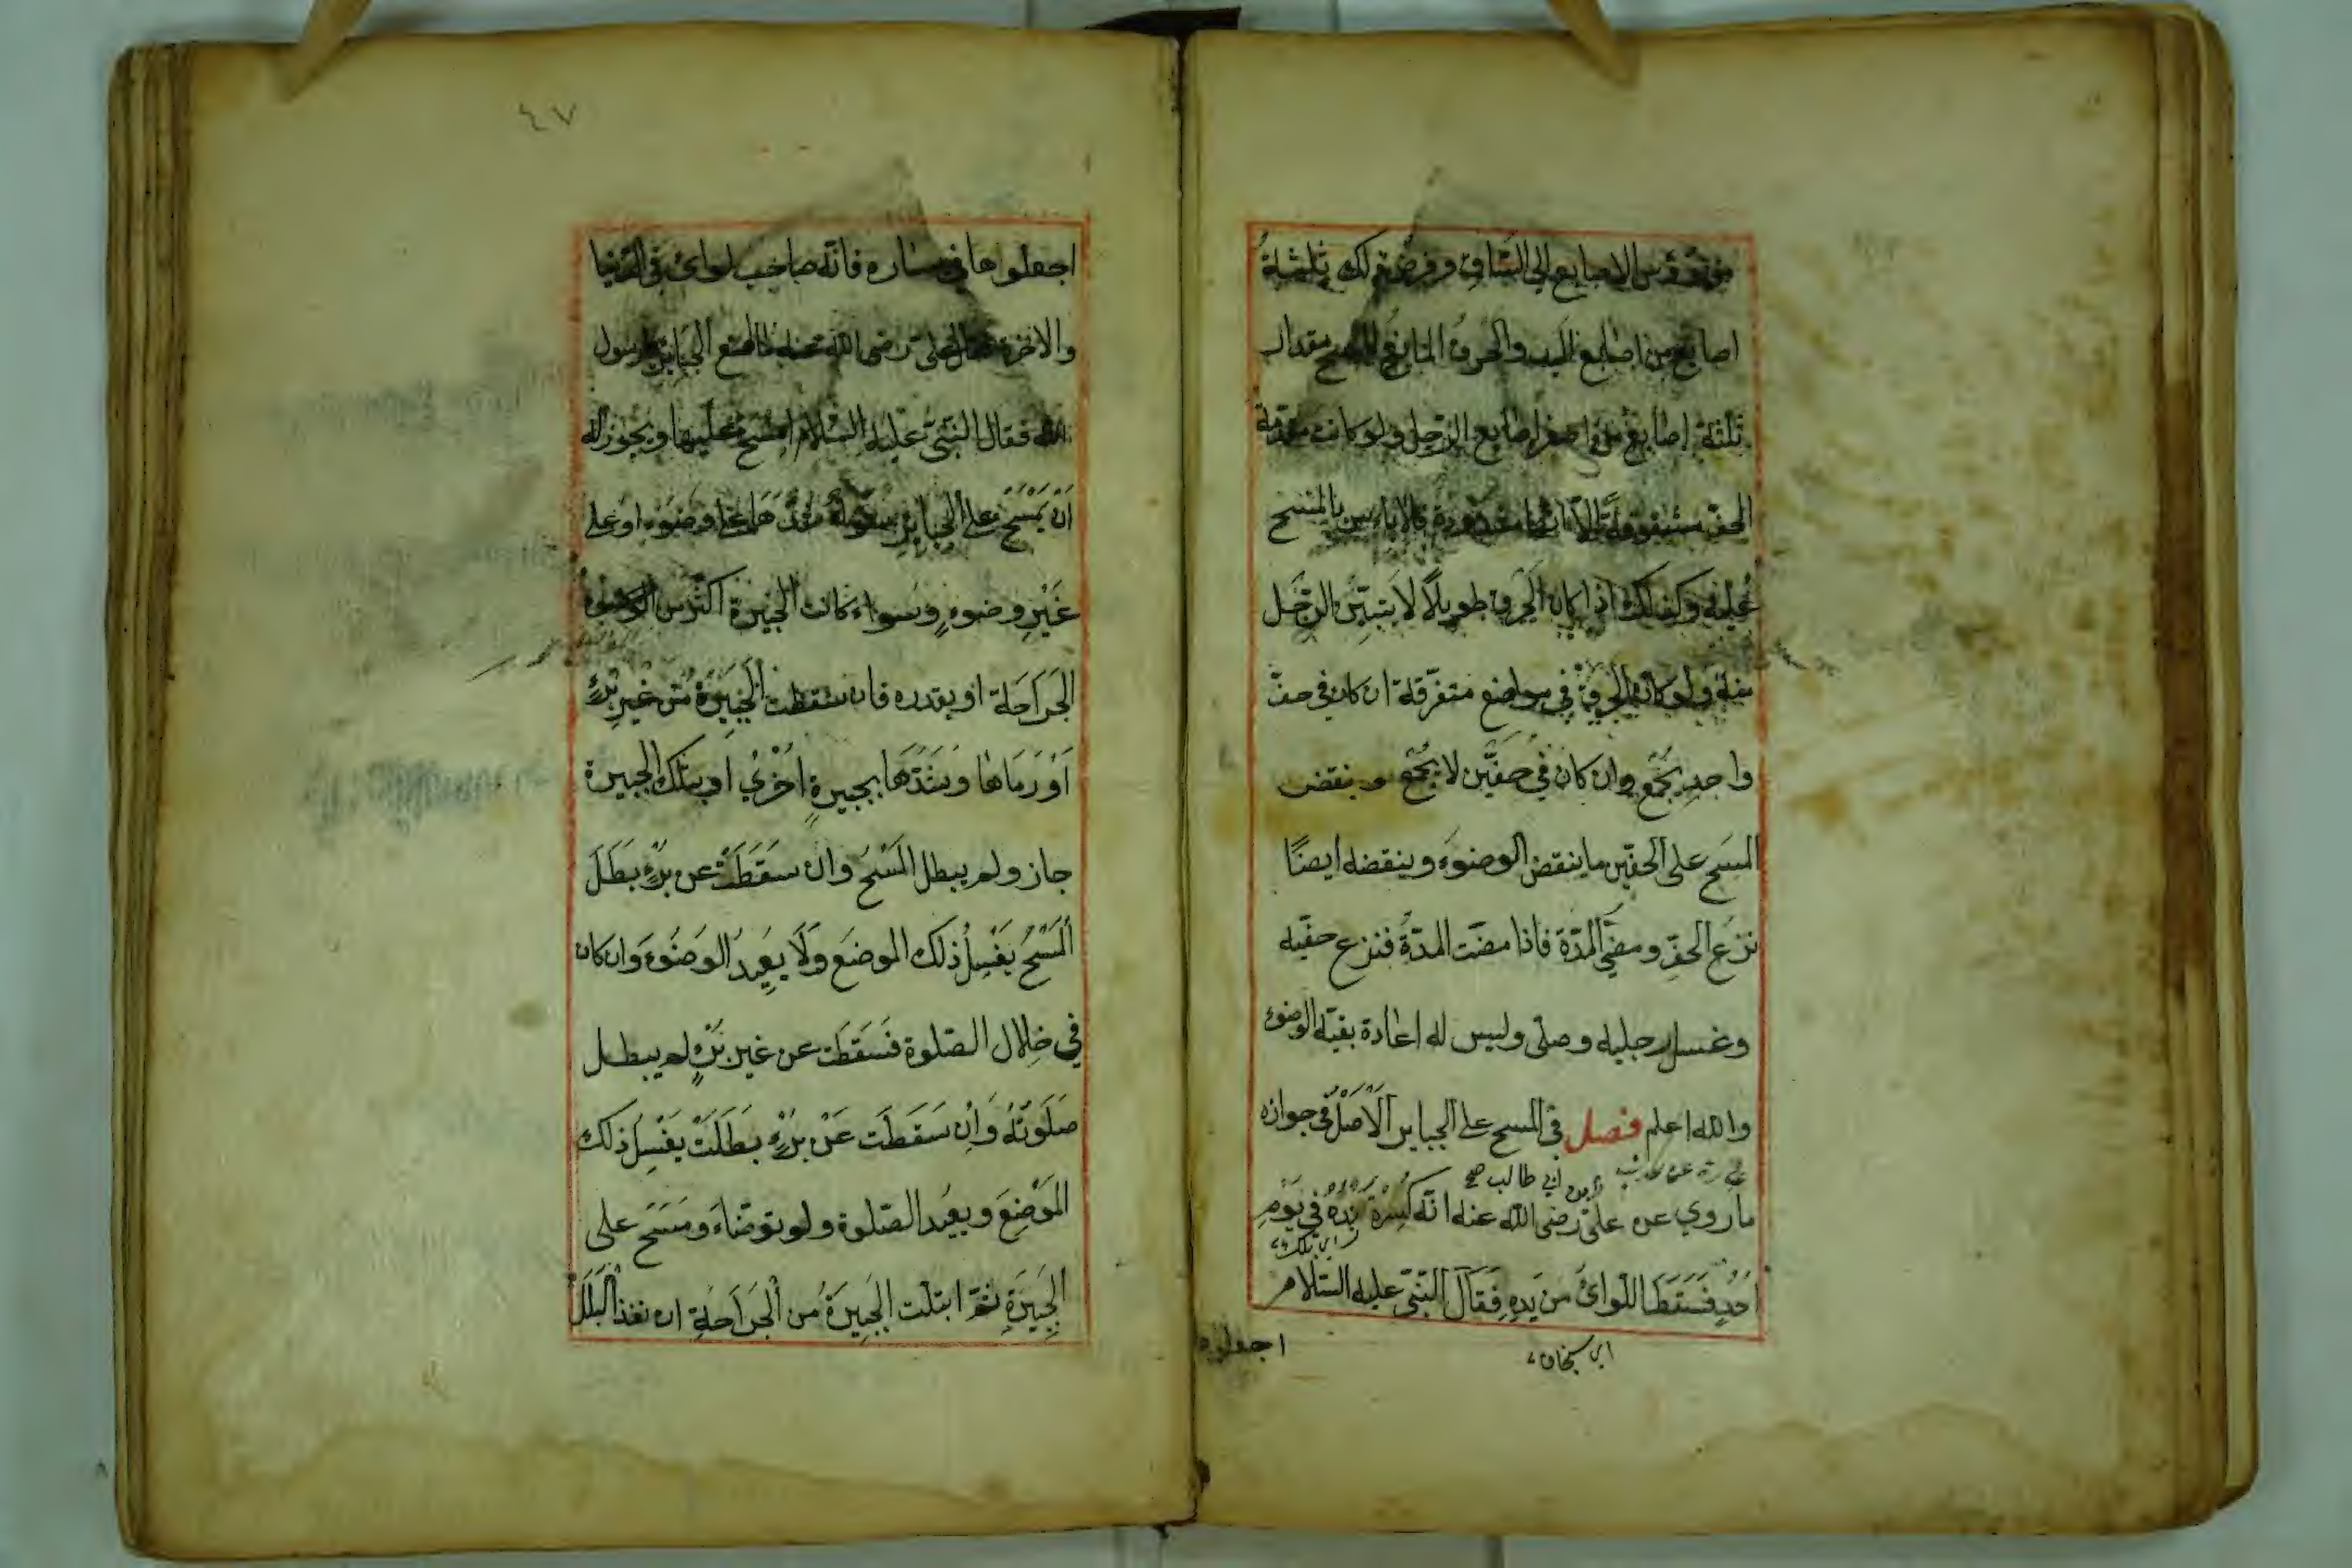 من رؤس الاصابع الى الساق وفرض ذلك ثلثة
اصابع من اصابع اليد والخرق المانع للمسح مقدار
ثلثة اصابع من اصغر اصابع الرجل ولو كانت مقدمة
الخف مشقوقة الا انها مشدودة فلا باس بالمسح
عليه وكذلك اذا كان الخرق طويلًا لا يتبيّن الرجل
منه ولو كان الخرق في مواضع متفرّقة ان كان في خفّ
واحدٍ يُجْمَع وان كان في خفّين لا يُجْمَع وينقض
المسح على الخفّين ما ينقض الوضوء وينقضه ايضًا
نزع الخفّ ومضّي المدّة فاذا مضت المدّة فنزع خفّيه
وغسل رجليه وصلّى وليس له اعادة بقيّة الوضوء
والله اعلم فصل في المسح على الجباير الاَصْل في جوازه
ابن ابي طالب صح
ما روي عن علىّ رضى الله عنه انّه كُسِرَة يَدُهُ في يَوْمِ
احُدٍ فَسَقَطَ اللوائُ مَن يَدِهِ فَقَالَ النّبيّ عليه السّلام
اجعلوه
٤٧
اجعلوها في يساره فانّه صاحب لوائى في الدّنيا
والاخرة فقال على رضى الله عنه ما اصنع الجباير يا رسول
الله فقال النّبيّ عليه السّلام امسَح عليها ويجوز له
اَن يَمْسَحَ على الجباير سواء شدّهَا على وضوء او على
غَيْرِ وضوءٍ وسواء كانت الجبيرة اكثر من
الجَراحَة او بقدره فان سقطت الجَبيَرة من غير بُرْءٍ
اَوْ رَمَاهَا وَشَدّهَا بجبيرةٍ اُخْرىُ او بتلك الجبيرة
جاز ولم يبطل المَسْحُ وان سَقَطَتْ عن بُرْءٍ بَطَلَ
اَلْمَسْحُ يَغْسِلُ ذلك الموضع وَلَا يعِيدُ الوضُوءَ وان كان
في خِلال الصّلوة فَسَقَطَت عن غير بُرْءٍ لم يبطل
صَلَوتُهُ وَاِن سَقَطَت عَنْ بُرْءٍ بَطَلَتْ يَغْسِلُ ذلك
المَوْضِعَ ويعُيد الصّلوة ولو توضّاءَ ومَسَحَ على
الجَبِيَرةِ ثمّ ابتلت الجَبِيَرةُ من الْجَرَاحَةِ ان نفذ البَلَلُ